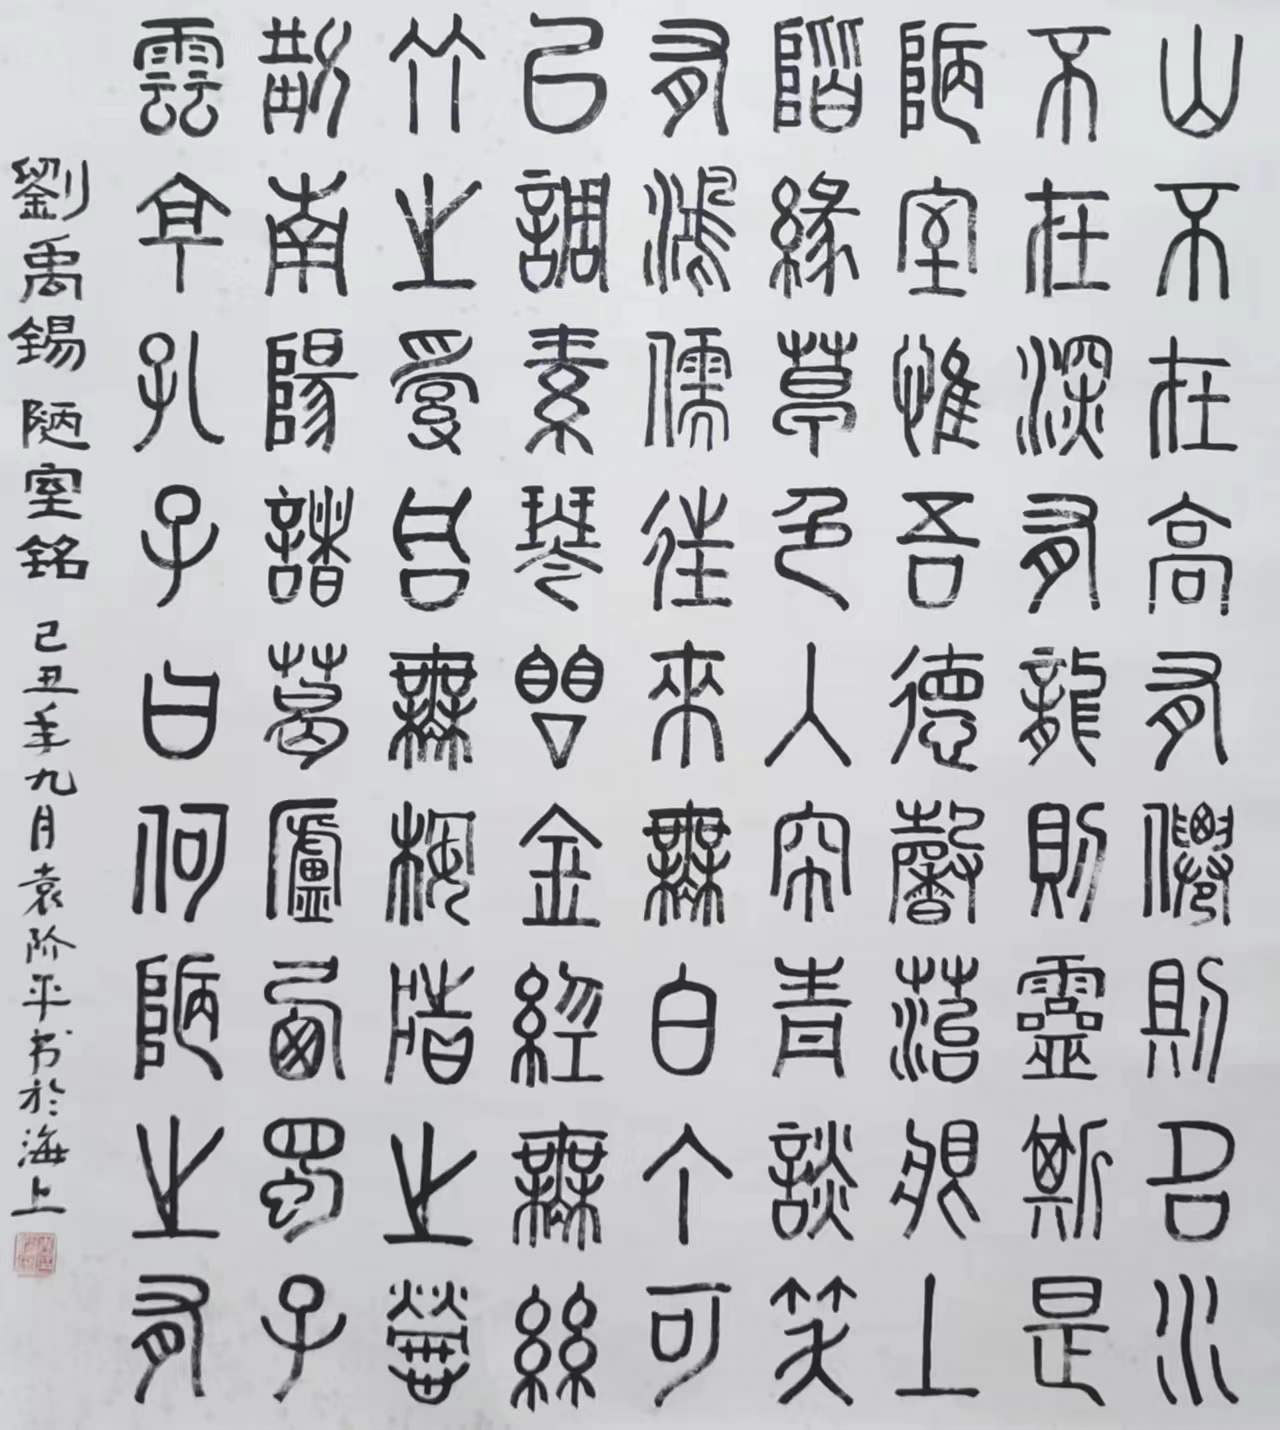 山不在高有僊則名水
不在深有龍則靈斯是
陋室惟吾德馨菭痕上
階緣草色入帘青談笑
有鴻儒往來無白丁可
以調素琴閱金經無絲
竹之亂耳無案牘之勞
形南陽諸葛廬西蜀子
雲亭孔子曰何陋之有
劉禹錫陋室銘 己丑年九月袁阶平书於海上